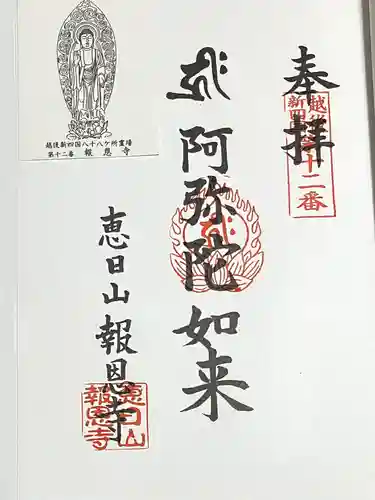 奉拝
越後新四国十二番
阿弥陀如来
恵日山報恩寺
恵日山
報恩寺
越後新四国八十八ケ所霊場
第十二番 報恩寺